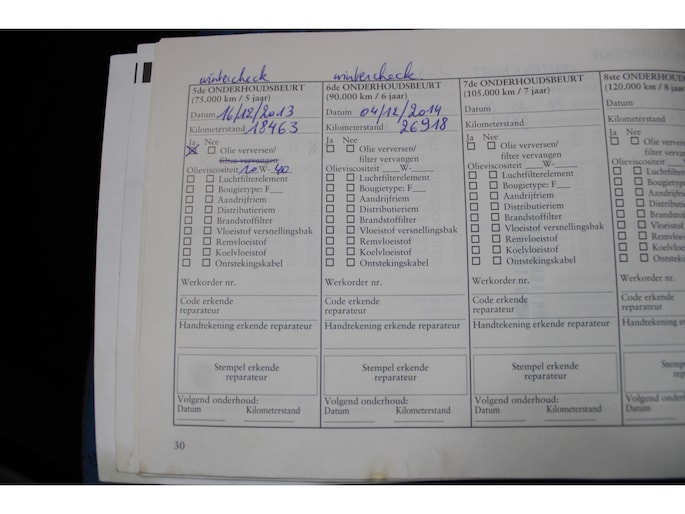 wintercheck
5de ONDERHOUDSBEURT
(75.000 km / 5 jaar)
Datum 16/12/2013
Kilometerstand 18463
Ja Nee
Olie verversen/
filter vervangen
Olieviscositeit 10 W- 40
Luchtfilterelement
Bougietype: F___
Aandrijfriem
Distributieriem
Brandstoffilter
Vloeistof versnellingsbak
Remvloeistof
Koelvloeistof
Ontstekingskabel
Werkorder nr.
Code erkende
reparateur
Handtekening erkende reparateur
Stempel erkende
reparateur
Volgend onderhoud:
Datum Kilometerstand
wintercheck
6de ONDERHOUDSBEURT
(90.000 km / 6 jaar)
Datum 04/12/2014
Kilometerstand 26918
Ja Nee
Olie verversen/
filter vervangen
Olieviscositeit ____W-____
Luchtfilterelement
Bougietype: F___
Aandrijfriem
Distributieriem
Brandstoffilter
Vloeistof versnellingsbak
Remvloeistof
Koelvloeistof
Ontstekingskabel
Werkorder nr.
Code erkende
reparateur
Handtekening erkende reparateur
Stempel erkende
reparateur
Volgend onderhoud:
Datum Kilometerstand
7de ONDERHOUDSBEURT
(105.000 km / 7 jaar)
Datum
Kilometerstand
Ja Nee
Olie verversen/
filter vervangen
Olieviscositeit ____W-____
Luchtfilterelement
Bougietype: F___
Aandrijfriem
Distributieriem
Brandstoffilter
Vloeistof versnellingsbak
Remvloeistof
Koelvloeistof
Ontstekingskabel
Werkorder nr.
Code erkende
reparateur
Handtekening erkende reparateur
Stempel erkende
reparateur
Volgend onderhoud:
Datum Kilometerstand
8ste
(120.000 km / 8
Datum
Kilometerstand
Ja Nee
Olie verversen/
filter vervangen
Olieviscositeit
Bougietype:
Aandrijfriem
Brandstoffilter
Vloeistof
Remvloeistof
Koelvloeistof
Werkorder nr.
Code erkende
reparateur
Handtekening
Volgend
Datum
30